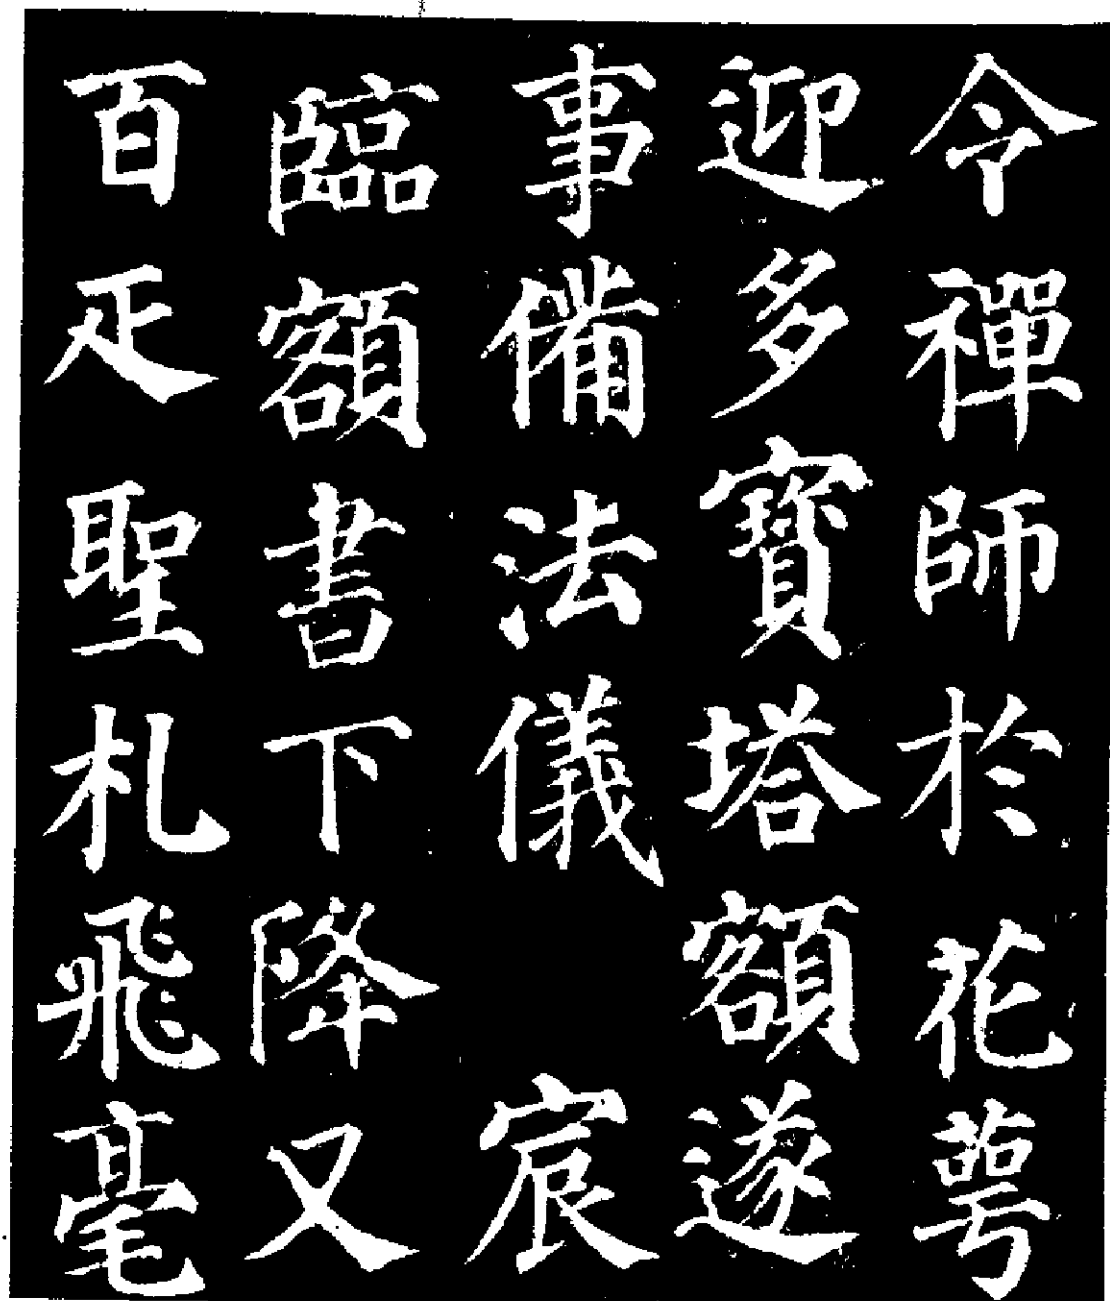 令禪師於花萼
迎多寶塔額遂
事備法儀宸
臨額書下降又
百疋聖札飛毫